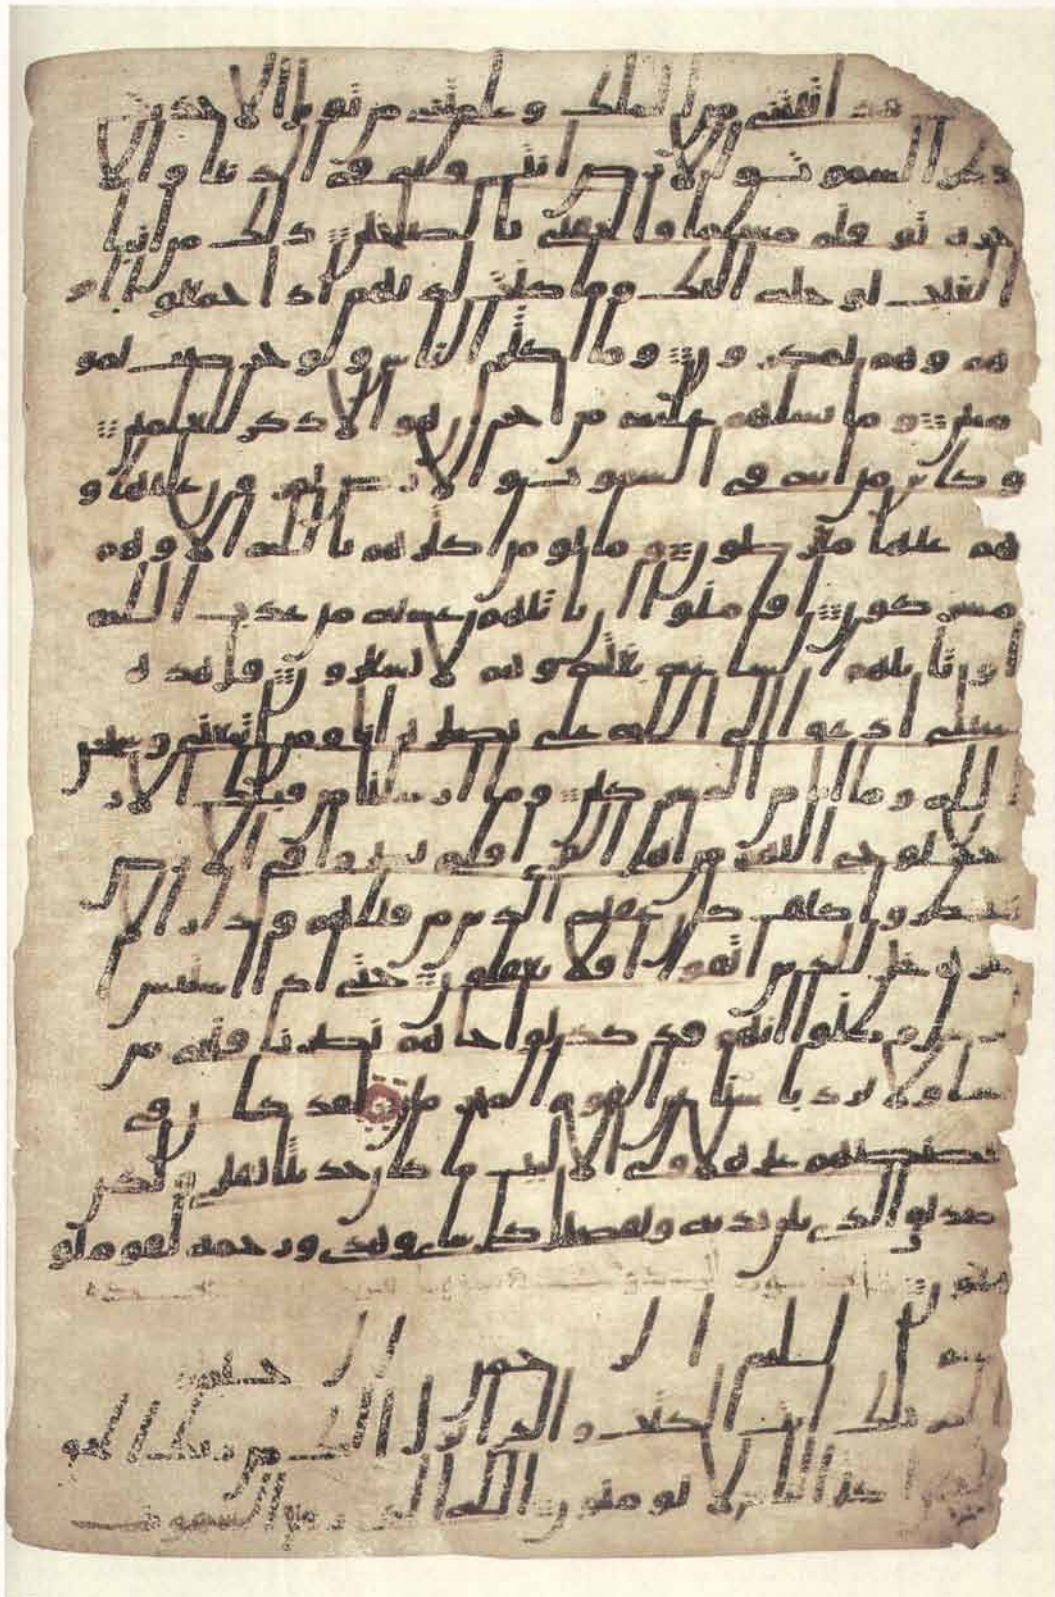 قد اتيتني من الملك وعلمتني من تويل الاحديث
طر السموت والارض انت ولي في الدنيا والا
خرة توفني مسلما والحقني بالصلحين ذلك من انبا
الغيب نوحيه اليك وما كنت لديهم اذ اجمعوا امر
هم وهم يمكرون وما اكثر الناس ولو حرصت بمو
منين وما تسلهم عليه من اجر ان هو الا ذكر للعلمين
وكاين من اية في السموت والارض يمرون عليها و
هم عنها معرضون وما يومن اكثرهم بالله الا وهم
مشركون افامنوا ان تاتيهم غشية من عذب الله
او تاتيهم الساعة بغتة وهم لا يشعرون قل هذه
سبيلي ادعوا الى الله على بصيرة انا ومن اتبعني وسبحن
الله وما انا من المشركين وما ارسلنا من قبلك الا ر
جلا نوحي اليهم من اهل القرى افلم يسيروا في الارض
فينظروا كيف كان عقبة الذين من قبلهم ولدار الا
خرة خير للذين اتقوا افلا تعقلون حتى اذا استيس
الرسل وظنوا انهم قد كذبوا جاهم نصرنا فنجي من
نشا ولا يرد باسنا عن القوم المجرمين لقد كان في
قصصهم عبرة لاولي الالبب ما كان حديثا يفترى ولكن
تصديق الذي بين يديه وتفصيل كل شي وهدى ورحمة لقوم يو
منون
بسم الله الرحمن الرحيم
المر تلك ايت الكتب والذي انزل اليك من ربك الحق و
لكن اكثر الناس لا يومنون الله الذي رفع السموت